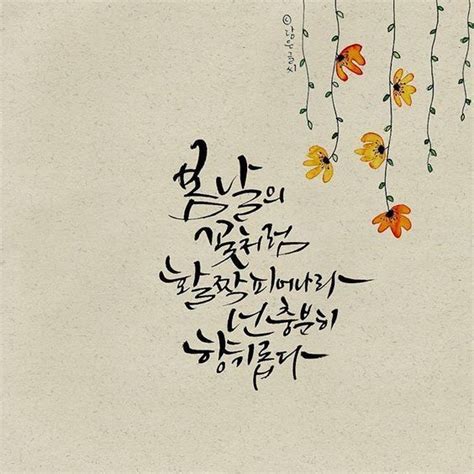 봄날의
꽃처럼
활짝 피어나라
넌 충분히
향기롭다